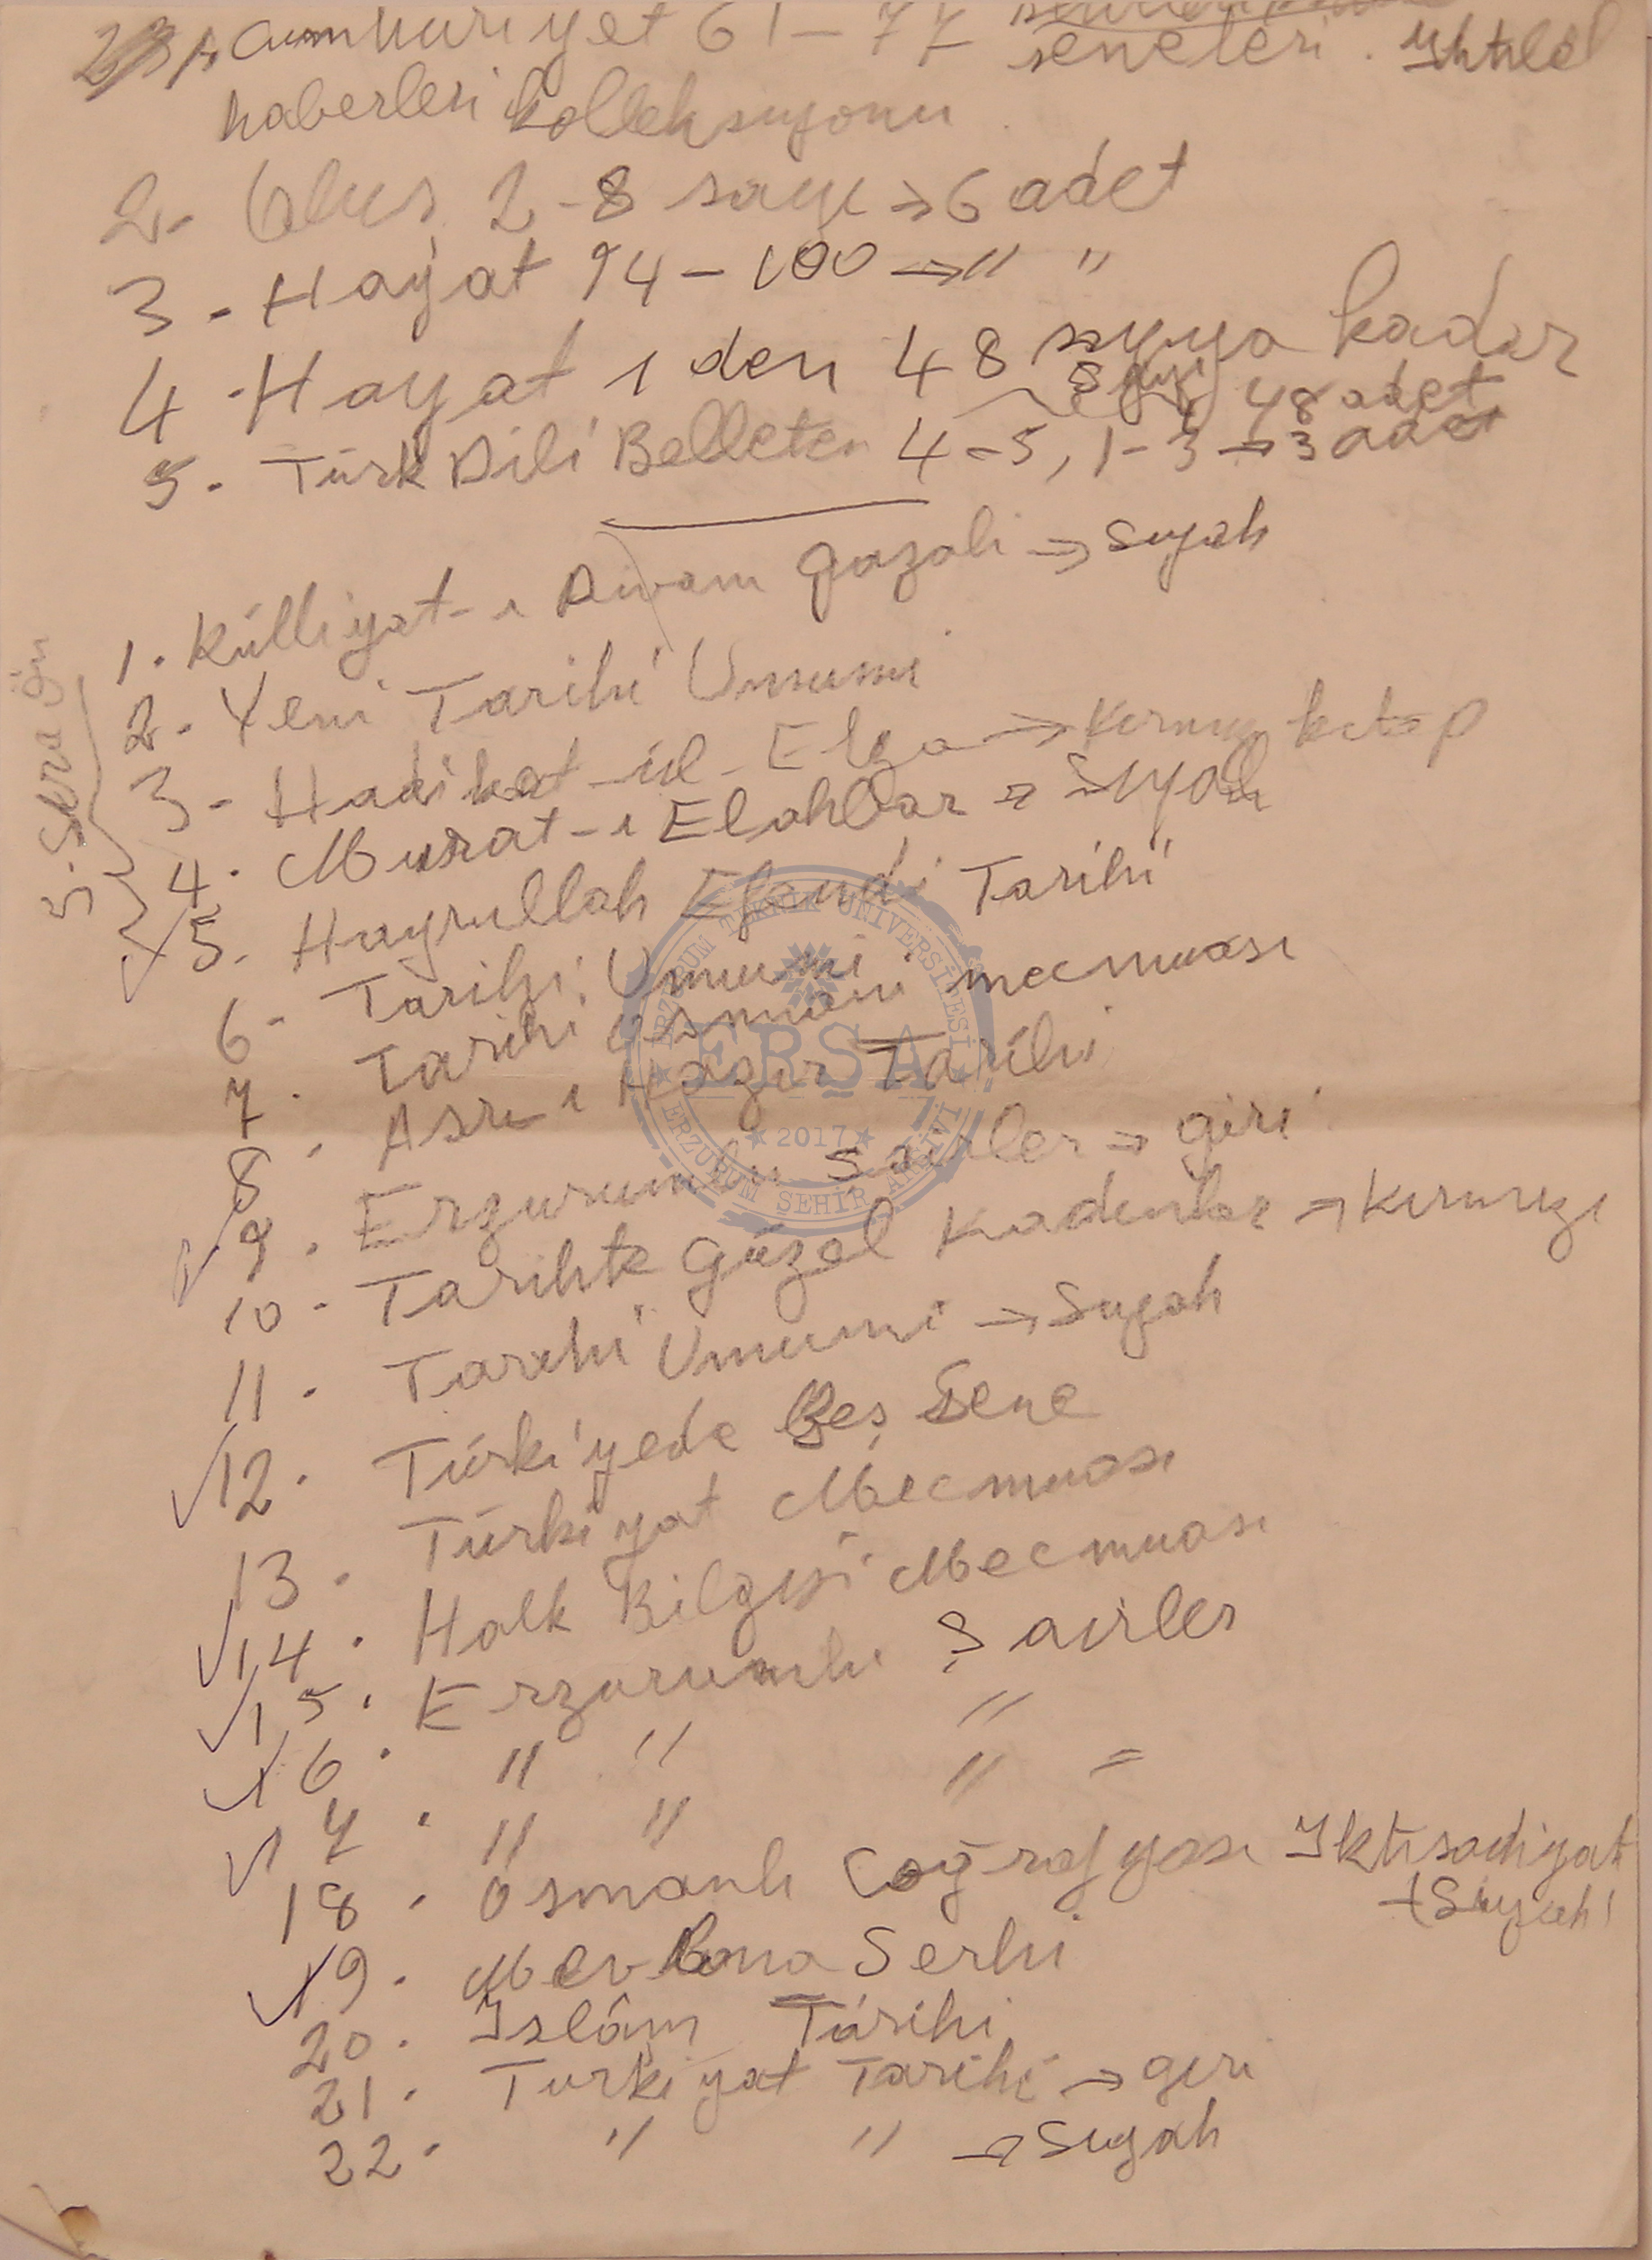 Cumhuriyet 61-77 seneleri. Ihtilal
haberleri kolleksuyonu
2- Ulus 2-8 sayı → 6 adet
3- Hayat 94-100 → " "
4- Hayat 1 den 48 sayıya kadar
sayı 48 adet
5. Türk Dili Belleten 4-5, 1-3 → 3 adet
1. Külliyat-ı Divanı gazali → Suyah
2- Yeni Tarihi Umumi
3- Hadikat-ül- → kitap
4. -ı Elahbar → Suyah
5. Sıra ön
5- Hayrullah Efendi Tarihi
6- Tarihi Umumi
7. Tarihi Osmani mecmuası
8. Asrı Hazır Tarihi
9. Erzurumlu Şairler → giri
10- Tarihte Güzel Kadınlar → Kırmızı
11. Tarihi Umumi → Suyah
12. Türkiyede Beş Sene
13. Türkiyat Mecmuası
14. Halk Bilgisi Mecmuası
15. Erzurumlu Şairler
16. " " "
17. " " " "
18. Osmanlı Coğrafyası Iktisadiyat
→ Suyah
19. Mevlana Serhi
20. Islâm Tarihi
21. Turkiyat Tarihi → giri
22- " " → Suyah
ERZURUM TEKNİK ÜNİVERSİTESİ
ERSA
2017
ERZURUM ŞEHİR ARŞİVİ